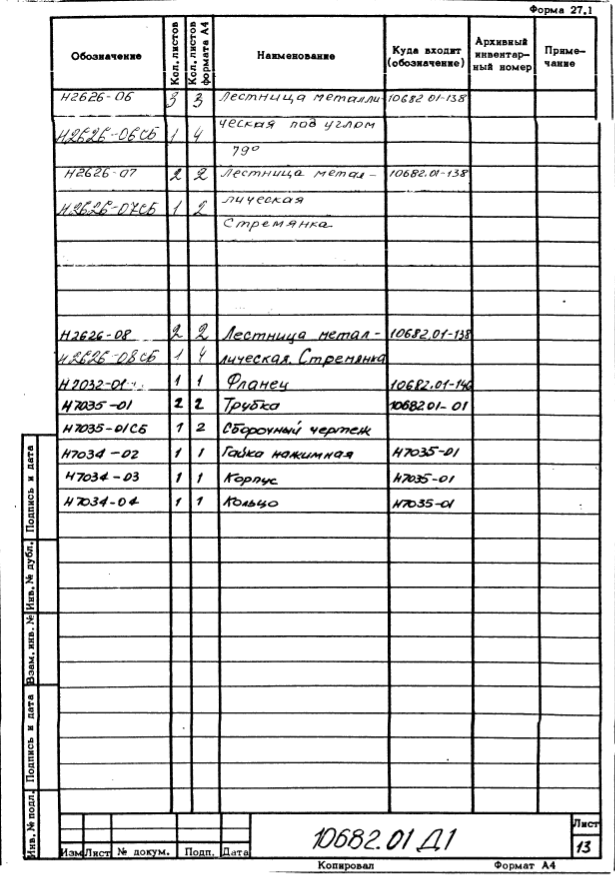 Форма 27.1
Обозначение Кол. листов Кол. листов формата А4 Наименование Куда входит (обозначение) Архивный инвентар-ный номер Приме-чание
Н2626-06 3 3 Лестница металли- 10682 01-138
Н2626-06СБ 1 4 ческая под углом
79°
Н2626-07 2 2 Лестница метал- 10682.01-138
Н2626-07СБ 1 2 лическая
Стремянка
Н2626-08 2 2 Лестница метал- 10682.01-138
Н2626-08СБ 1 4 лическая. Стремянка
Н2032-01 1 1 Фланец 10682.01-146
Н7035-01 2 2 Трубка 10682 01-01
Н7035-01СБ 1 2 Сборочный чертеж
Н7034-02 1 1 Гайка нажимная Н7035-01
Н7034-03 1 1 Корпус Н7035-01
Н7034-04 1 1 Кольцо Н7035-01
Подпись и дата
Инв. № дубл.
Взам. инв. №
Подпись и дата
Инв. № подл.
Изм Лист № докум. Подп. Дата
10682.01 Д1
Лист
13
Копировал Формат А4